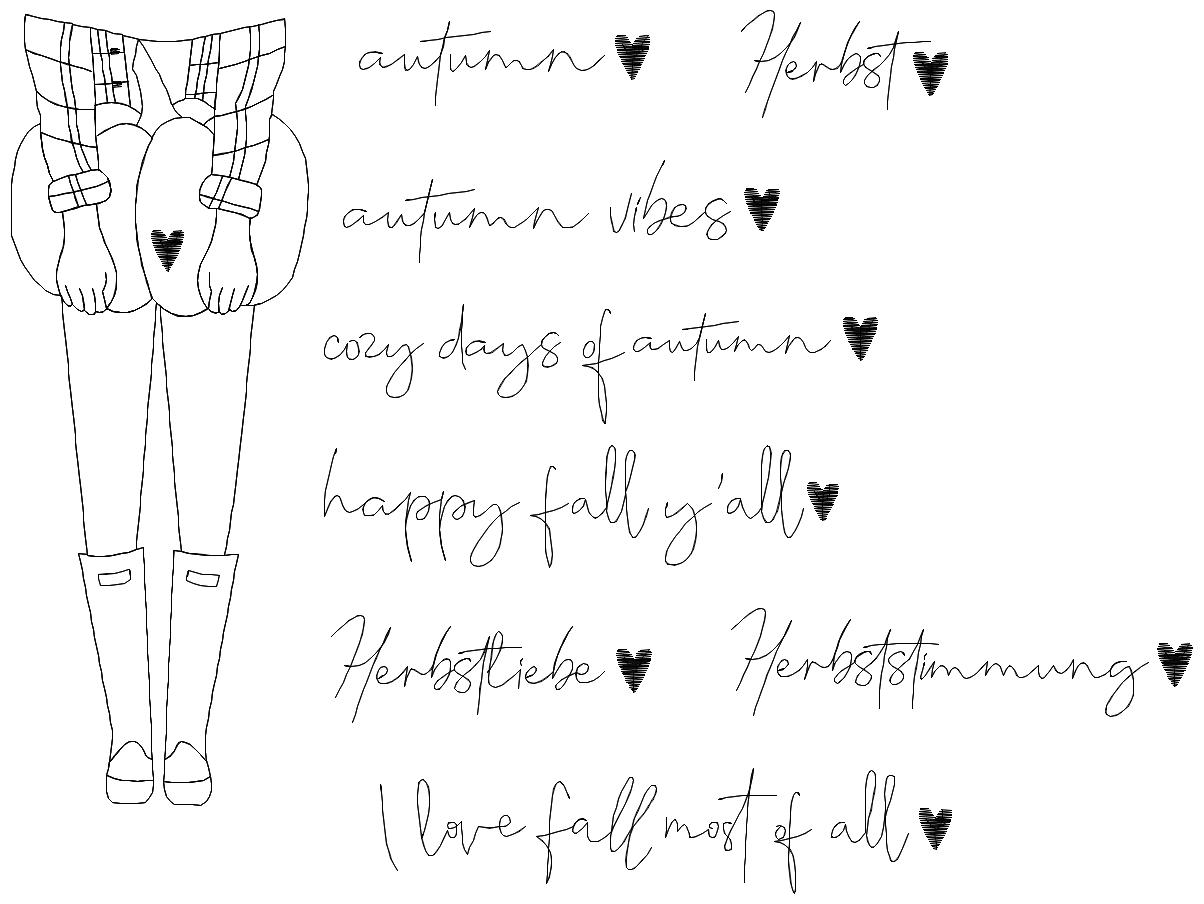 autumn Herbst
autumn vibes
cozy days of autumn
happy fall y'all
Herbstliebe Herbststimmung
I love fall most of all